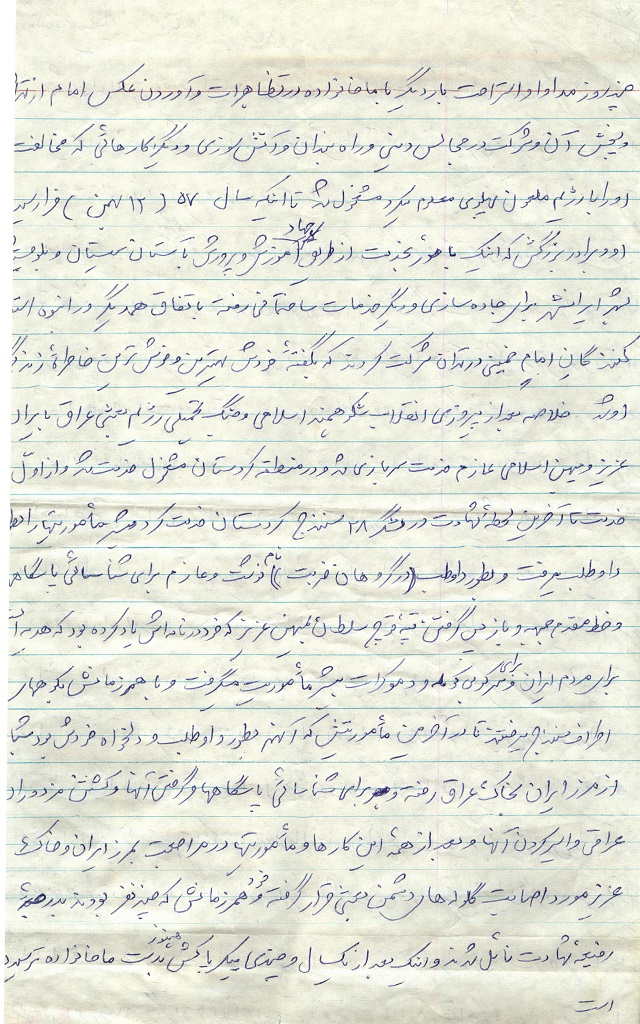 چند روز مداوا و استراحت بار دیگر با ما خانواده در تظاهرات و آوردن عکس امام از تهران
و پخش آن و شرکت در مجالس دینی و راه بندان و آتش سوزی و دیگر کارهائی که مخالفت
او را با رژیم ملعون پهلوی معلوم میکرد مشغول شد تا اینکه سال ۵۷ (۱۲ بهمن) فرا رسید
او و برادر بزرگش که اینک با هم خدمت از طریق جهاد آموزش و پرورش تابستان سیستان و بلوچستان
شهر ایرانشهر برای جاده سازی و دیگر خدمات ساختمانی رفته با تفاق همدیگر در انبوه استقبال
کنندگان امام خمینی در تهران شرکت کردند که بگفتهٔ خودش بهترین و خوش ترین خاطرهٔ زندگی
او شد خلاصه بعد از پیروزی انقلاب شکوهمند اسلامی و جنگ تحمیلی رژیم بعثی عراق با ایران
عزیز و میهن اسلامی عازم خدمت سربازی شد و در منطقه کردستان مشغول خدمت شد و از اول
خدمت تا آخرین لحظهٔ شهادت در لشگر ۲۸ سنندج کردستان خدمت کرد و بیشتر مأموریتها را بطور
داوطلب میرفت و بطور داوطلب (در گروهان ضربت) نام نوشت و عازم برای شناسائی پاسگاهها
و خط مقدم جبهه و باز پس گرفتن تپهٔ قوچ سلطان میهن عزیز که خود در نامه اش یاد کرده بود که هدیه ای
برای مردم ایران و برای سرکوبی کومله و دموکرات بیشتر مأموریت میگرفت و با همرزمانش بکوههای
اطراف سنندج میرفتند تا در آخرین مأموریتش که آنهم بطور داوطلب و دلخواه خودش بود شبانه
از مرز ایران بخاک عراق رفته و برای شناسائی پاسگاهها و گرفتن آنها و کشتن مزدوران
عراقی و اسیر کردن آنها و بعد از همهٔ این کارها و مأموریتها در مراجعت بمرز ایران و خاک
عزیز مورد اصابت گلوله های دشمن بعثی قرار گرفته و خود و همرزمانش که چند نفر بودند بدرجهٔ
رفیعهٔ شهادت نائل شدند و اینک بعد از یکسال و چندی پیکر پاکش هنوز بدست ما خانواده نرسیده
است